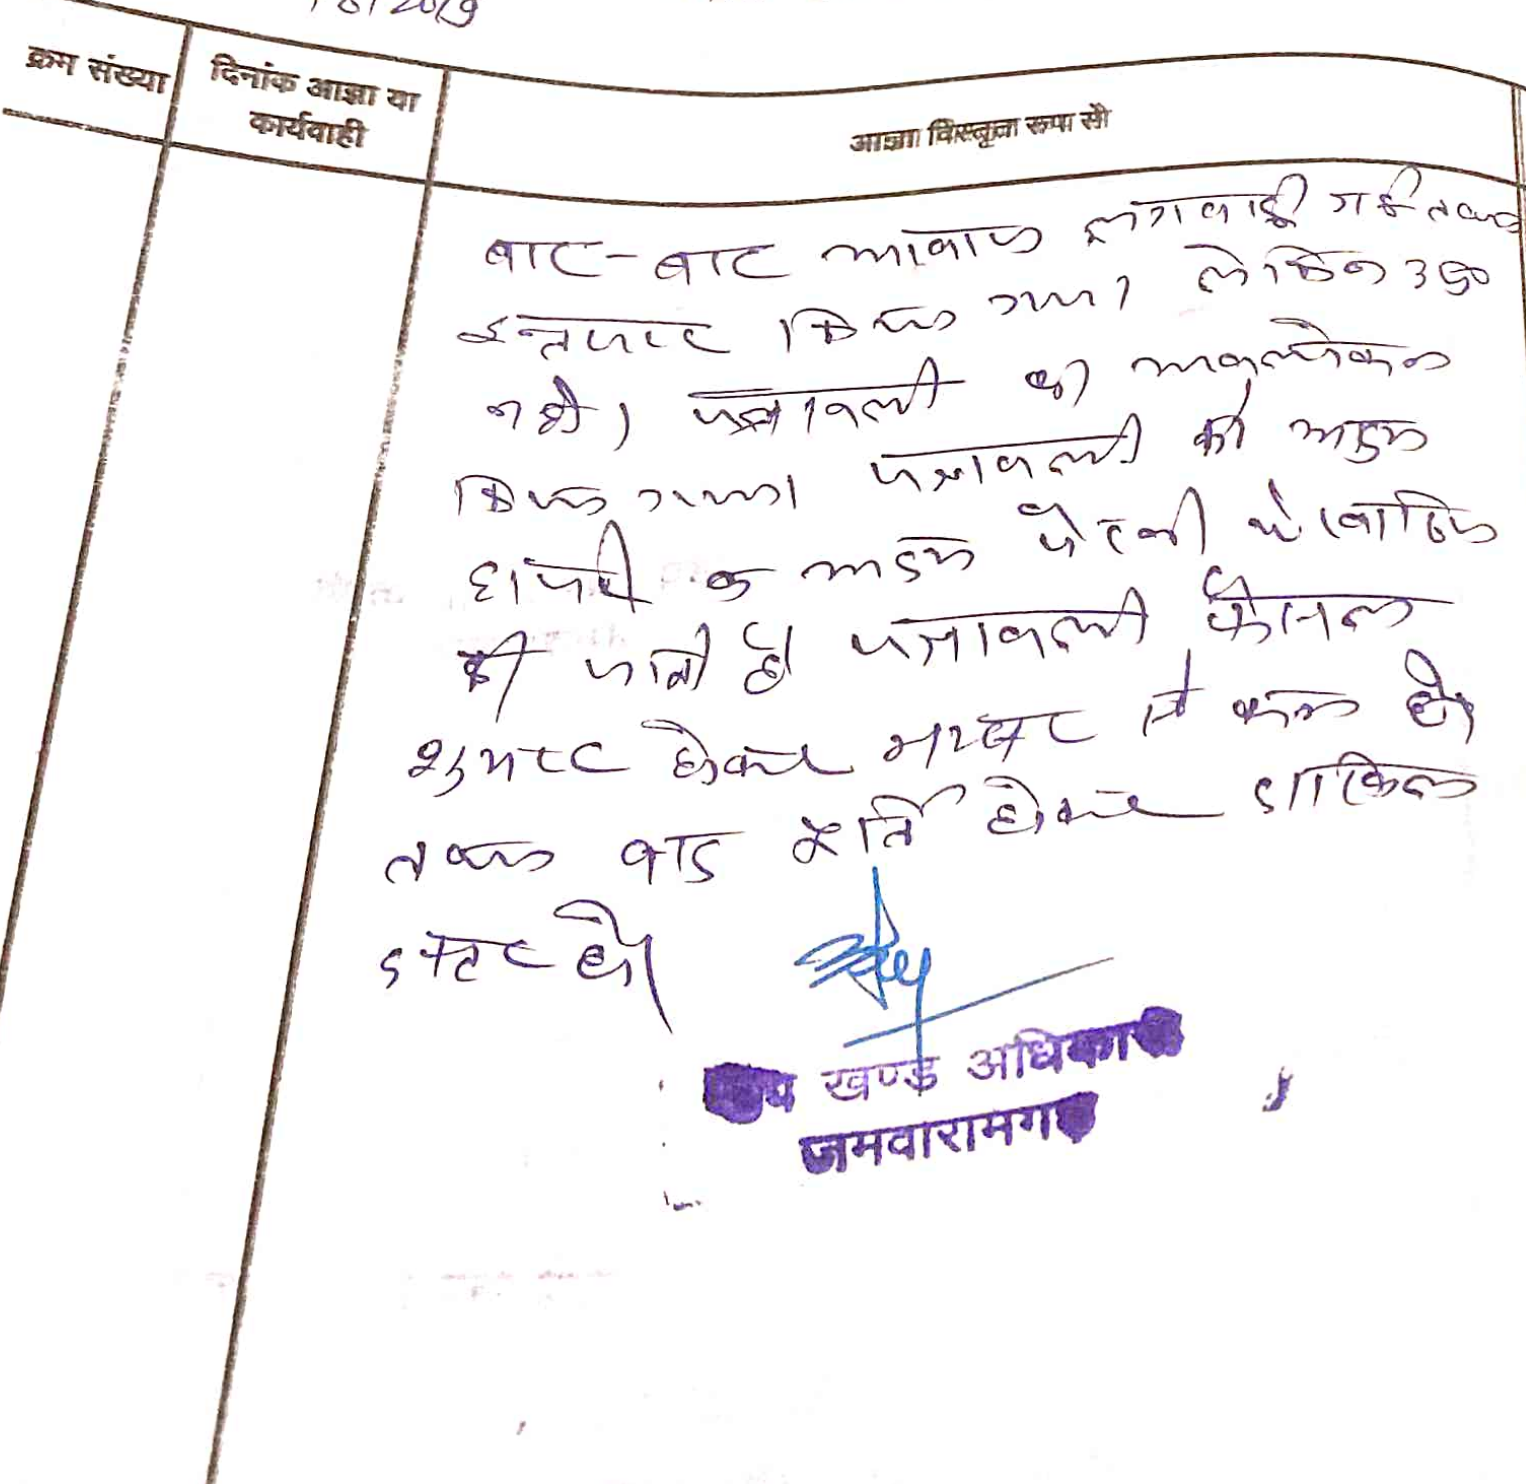 2019
क्रम संख्या
दिनांक आज्ञा या
कार्यवाही
आज्ञा विस्तृत रूप से
बार-बार आवाज लगवाई गई तथा
इन्तजार किया गया। लेकिन उप०
नही। पत्रावली का अवलोकन
किया गया। पत्रावली को अदम
हाजरी व अदम पैरवी में खारिज
की जाती है। पत्रावली फैसल
शुमार होकर नम्बर से कम हो
तथा बाद पूर्ति होकर दाखिल
दफ्तर हो।
उप खण्ड अधिकारी
जमवारामगढ़